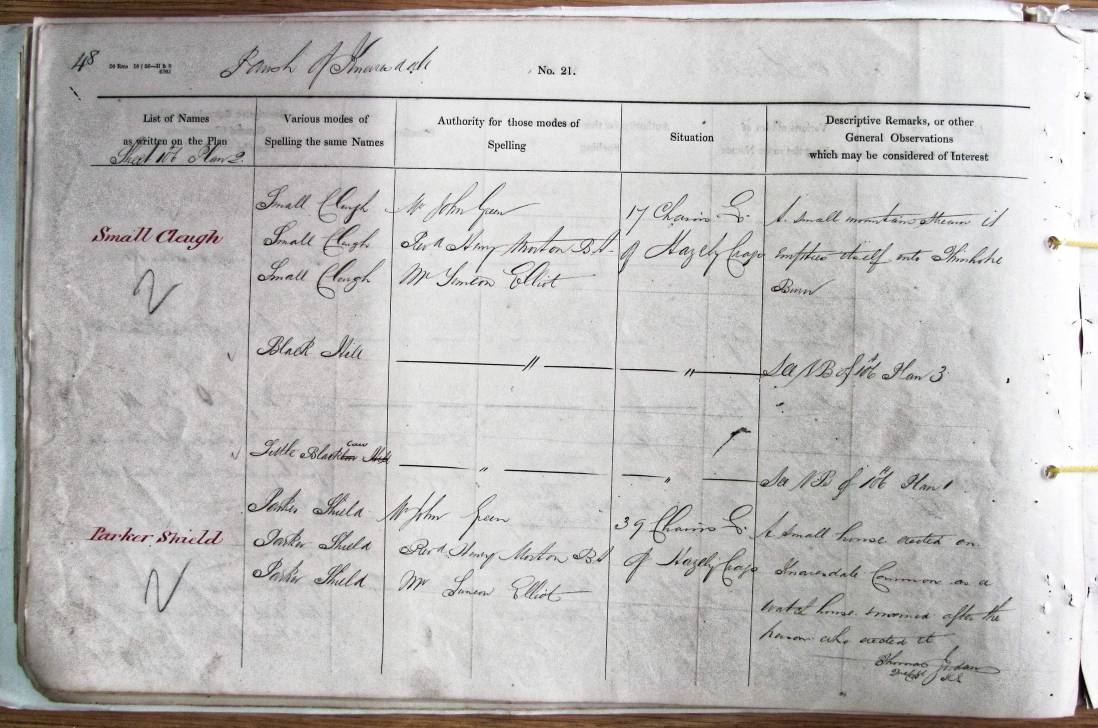 48
Parish of Knaresdale
No. 21.
List of Names
as written on the Plan
Various modes of
Spelling the same Names
Authority for those modes of
Spelling
Situation
Descriptive Remarks, or other
General Observations
which may be considered of Interest
Sheet 106 Plan 2
Small Cleugh
Small Cleugh
Small Cleugh
Small Cleugh
Mr John Green
Revd Henry Morton B.A.
Mr Simeon Elliot
17 Chains E.
of Hazely Crags
A small mountain stream it
empties itself into Thinhope
Burn
Black Hill
"
"
See NB of 106 Plan 3
Little Black
Caw
"
"
See NB of 106 Plan 1
Parker Shield
Parker Shield
Parker Shield
Parker Shield
Mr John Green
Revd Henry Morton B.A
Mr Simeon Elliot
39 Chains E.
of Hazely Crags
A small house erected on
Knaresdale Common as a
watch house so named after the
person who erected it
Thomas Jordan